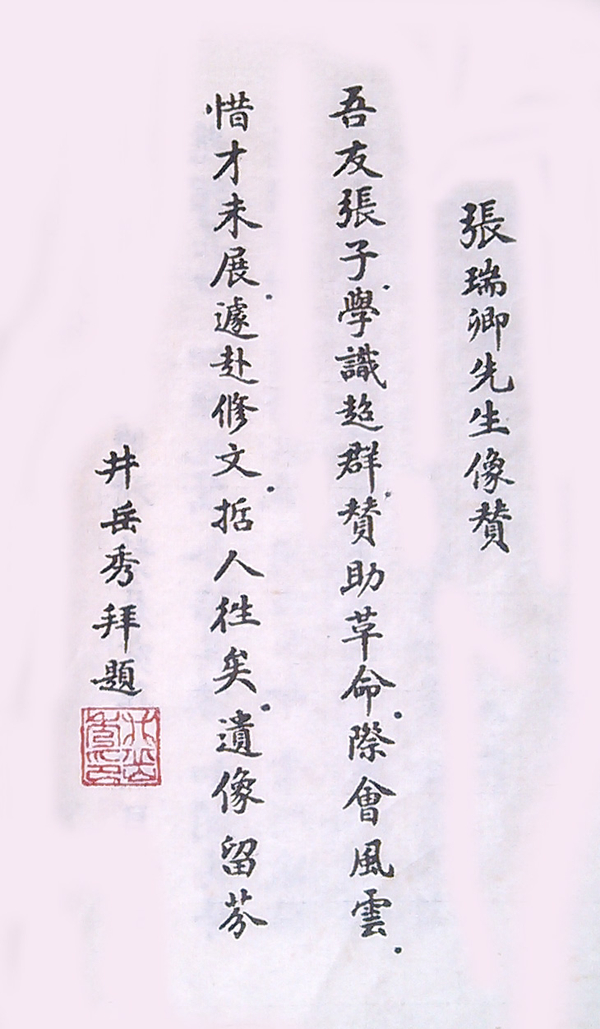 張瑞卿先生像赞
吾友張子。學識超群。赞助革命。際會風雲。
惜才未展。遽赴修文。哲人徃矣。遺像留芬
井岳秀拜題